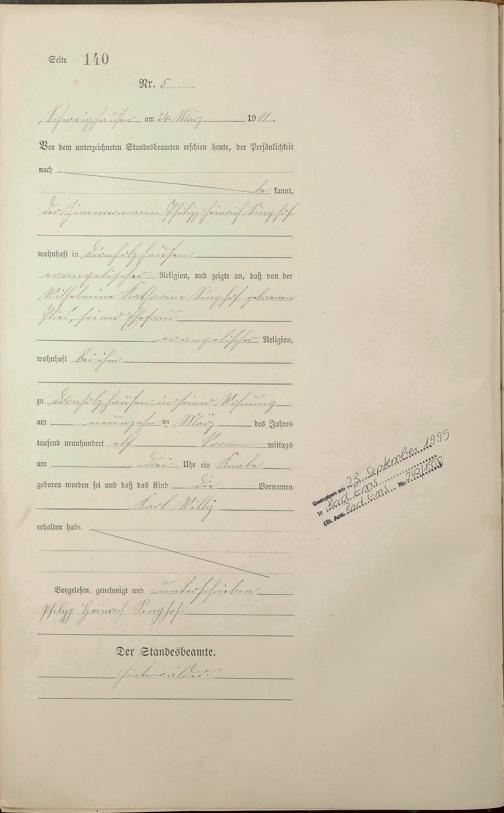 Seite 140
Nr. 5
Schweighausen am 24. März 1911.
Vor dem unterzeichneten Standesbeamten erschien heute, der Persönlichkeit
nach
be kannt,
der Zimmermann Philipp Heinrich Singhof
wohnhaft in Dornholzhausen
evangelischer Religion, und zeigte an, daß von der
Wilhelmine Katharine Singhof geborenen
seiner Ehefrau
evangelischer Religion,
wohnhaft bei ihm
zu Dornholzhausen in seiner Wohnung
am neunzehnten März des Jahres
tausend neunhundert elf Vor mittags
um drei Uhr ein Knabe
geboren worden sei und daß das Kind die Vornamen
Karl Willy
erhalten habe.
Vorgelesen, genehmigt und unterschrieben
Philipp Heinrich Singhof
Der Standesbeamte.
Gestorben am 23. September 1999
in Bad Ems
Bad Ems Nr.